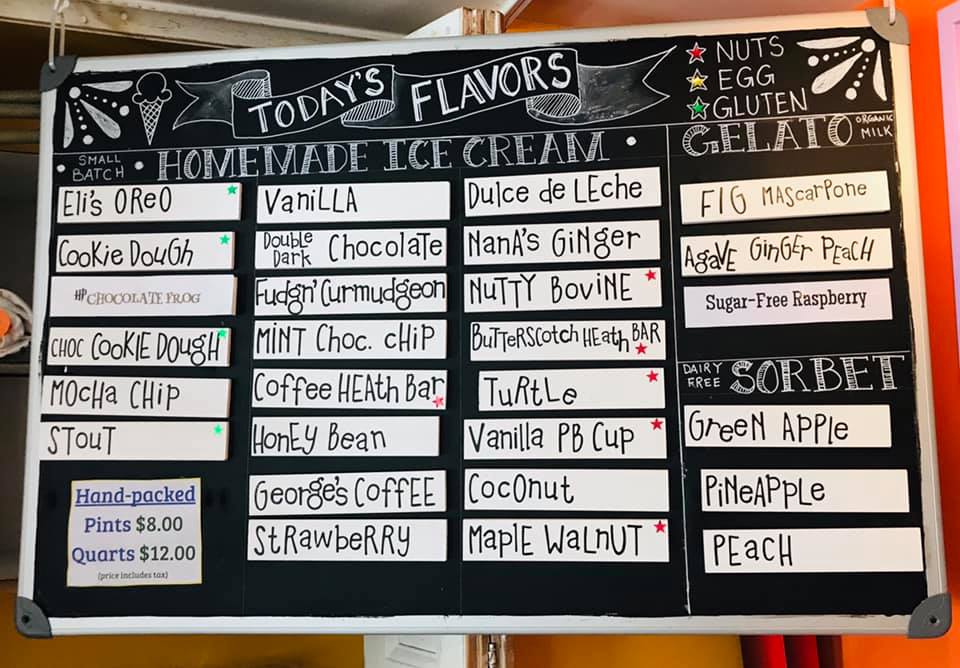 TODAY'S FLAVORS
NUTS
EGG
GLUTEN
SMALL
BATCH
HOMEMADE ICE CREAM
Eli's OReO
Cookie DouGh
HP CHOCOLATE FROG
CHOC COOKIE DOugH
MOCHA CHIP
STOUT
Hand-packed
Pints $8.00
Quarts $12.00
(price includes tax)
VaniLLA
Double
Dark Chocolate
Fudgn' Curmudgeon
MINT CHoc. cHiP
Coffee HEAth Bar
HonEy Bean
George's CoffEE
StRawbeRRy
Dulce de LEche
NanA's GiNger
NuTTY BoviNE
BuTTERScotcH HEath BAR
TuRtLe
Vanilla PB Cup
CocOnut
MaplE WaLnUT
GELATO
ORGANIC
MILK
FIG MAScarPone
AgaVE GinGEr PeacH
Sugar-Free Raspberry
DAIRY
FREE
SORBET
GreeN APPle
PiNeAPPLe
PEacH